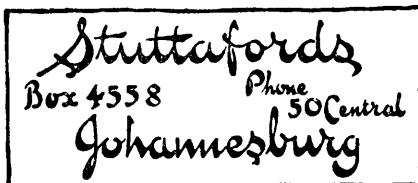 Stuttafords
Box 4558 Phone 50 Central
Johannesburg